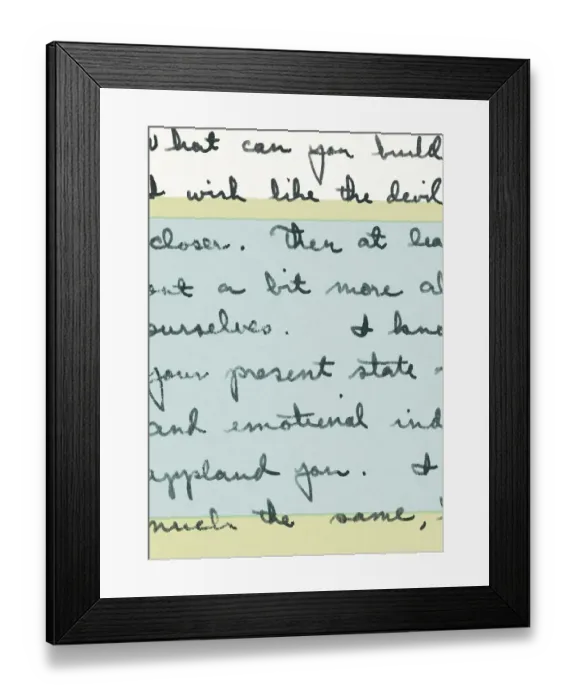 what can you build
I wish like the devil
closer. Then at lea
out a bit more al
ourselves. I kne
your present state
and emotional ind
applaud you. I
much the same,